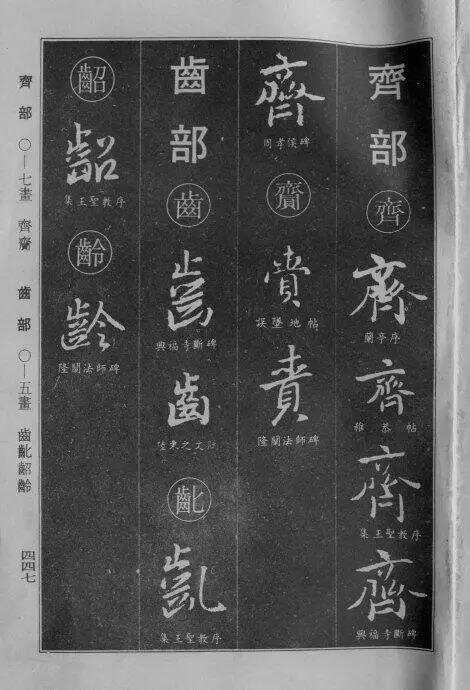 齊部
齊
齊
蘭亭序
齊
雅恭帖
齊
集王聖教序
齊
興福寺斷碑
齊
周孝侯碑
齎
誤墜地帖
隆闡法師碑
齒部
齒
齒
興福寺斷碑
齒
齔
齔
集王聖教序
齠
齠
集王聖教序
齡
齡
隆闡法師碑
齊部 〇—七畫 齊齎 齒部 〇—五畫 齒齔齠齡
四四七